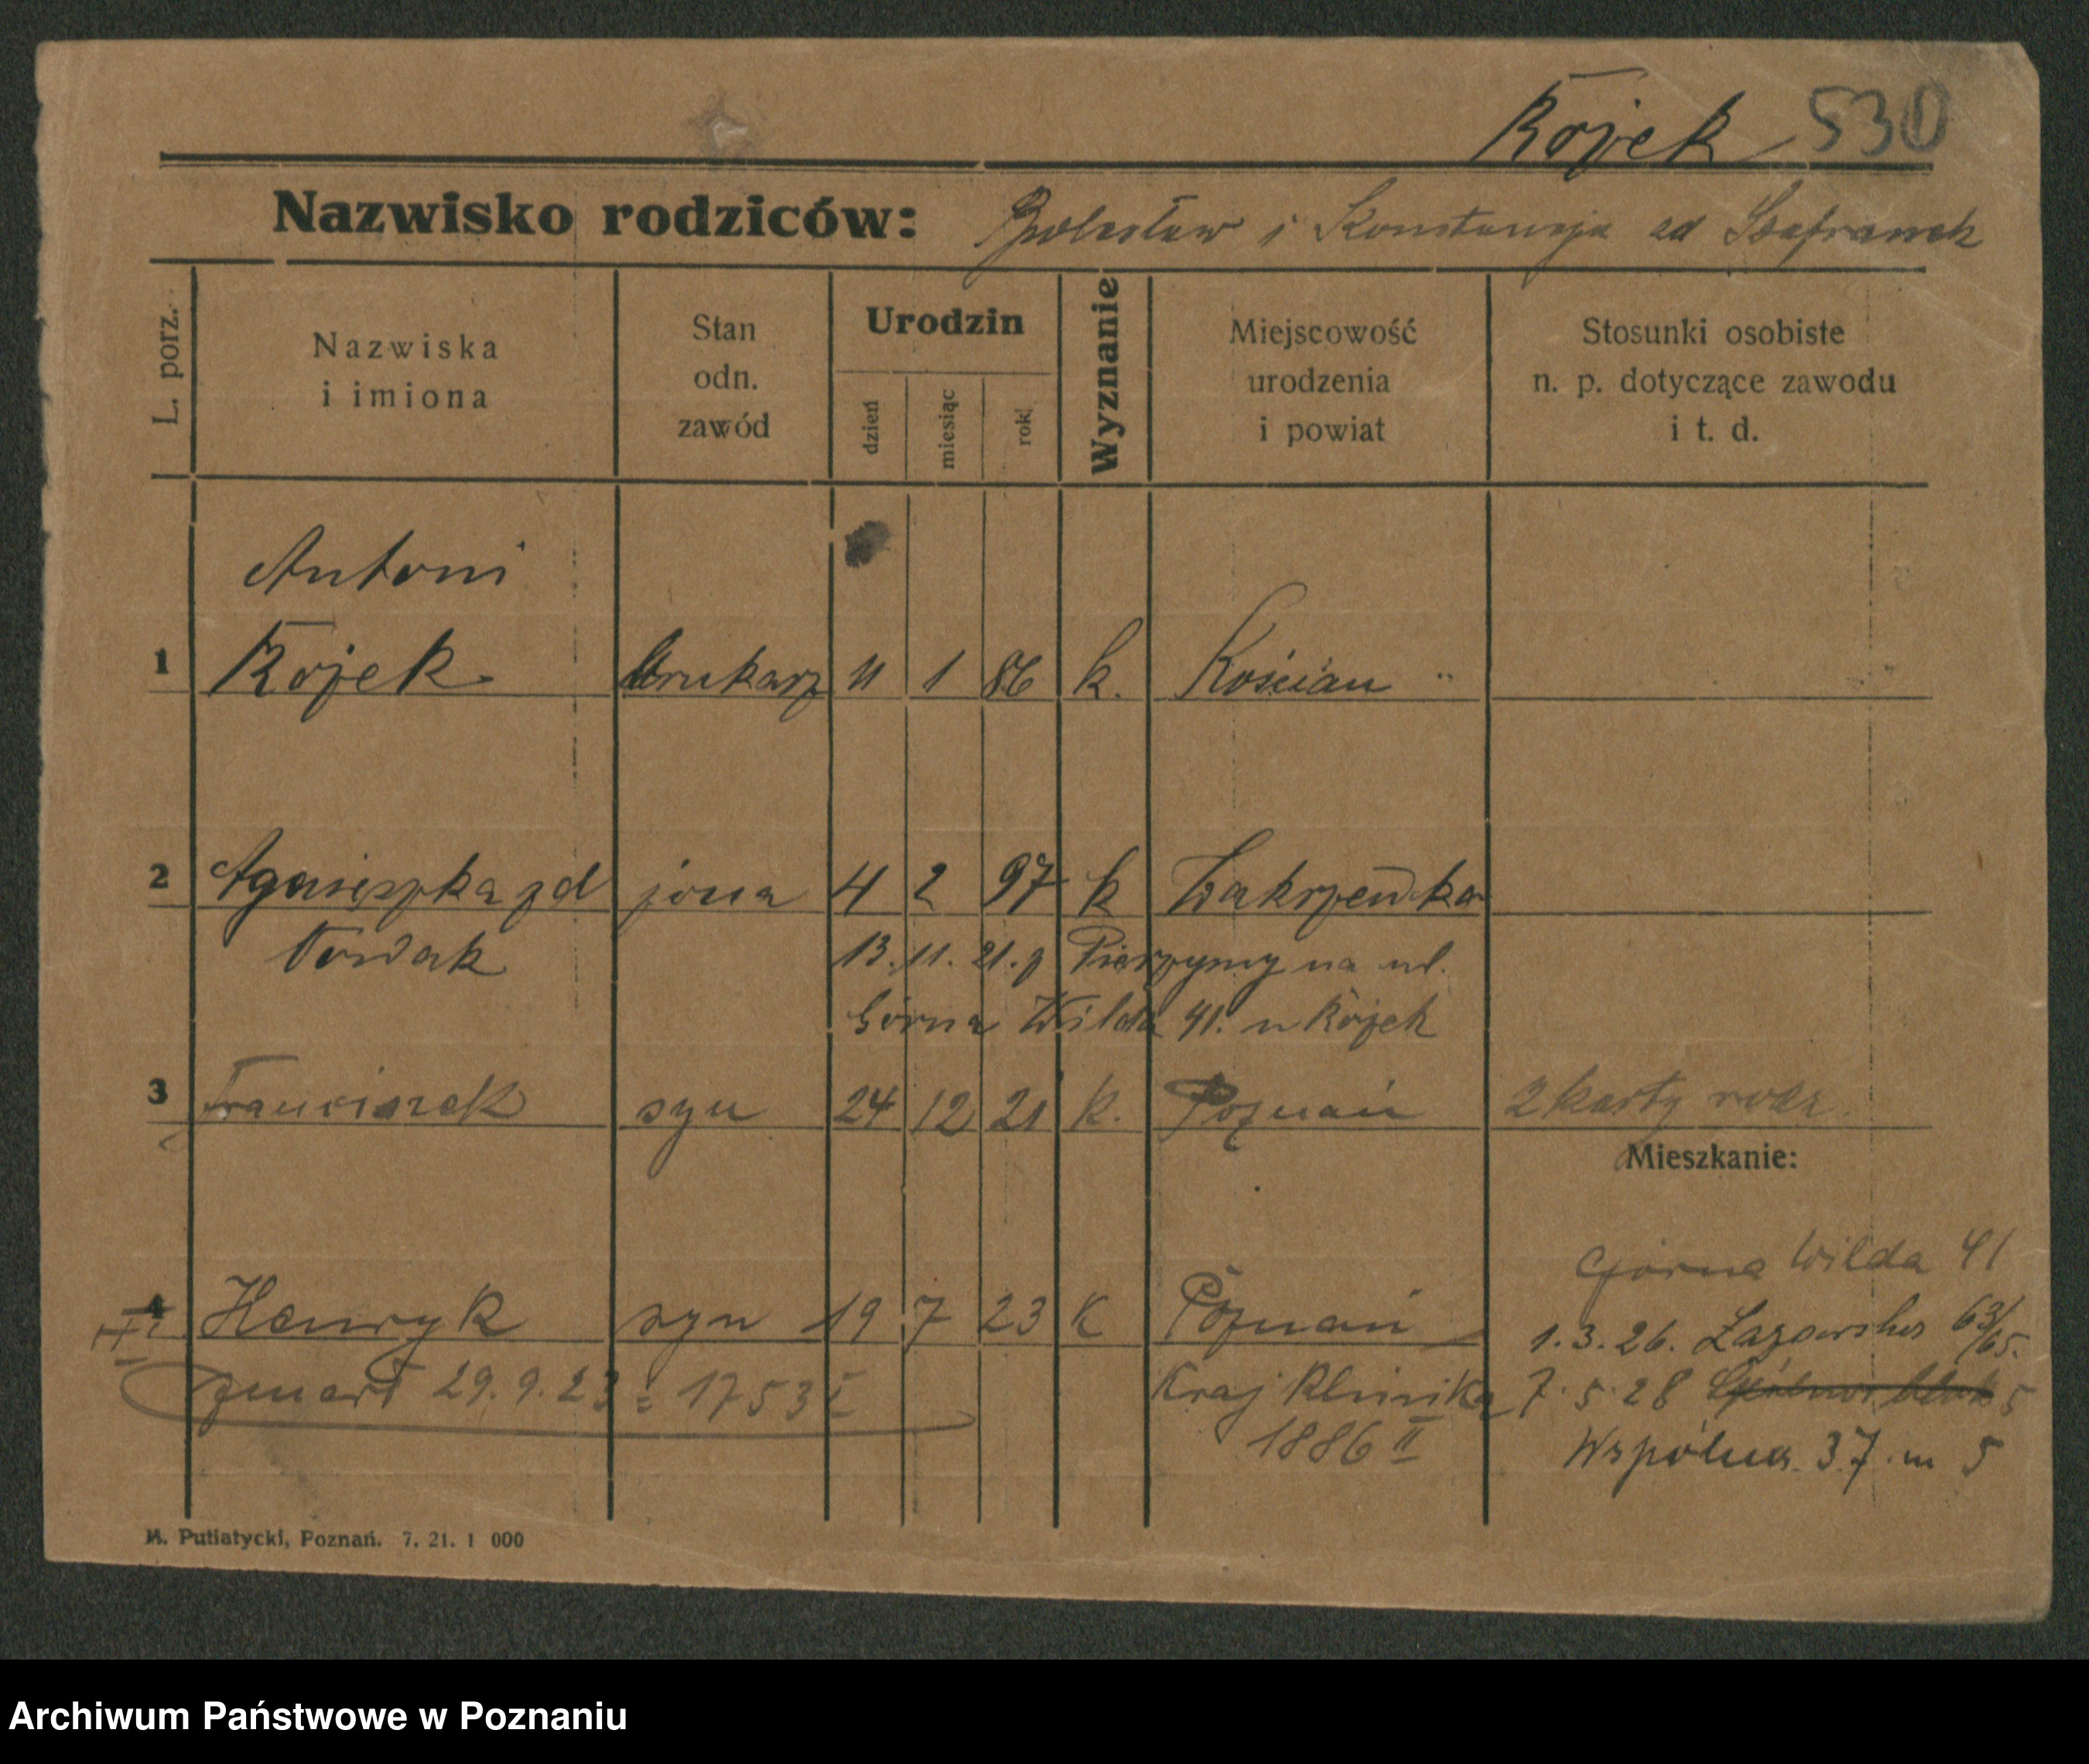 Rojek 530
Nazwisko rodziców: Bolesław i Konstancja zd Szafranek
L. porz.
Nazwiska i imiona
Stan odn. zawód
Urodzin
dzień
miesiąc
rok
Wyznanie
Miejscowość urodzenia i powiat
Stosunki osobiste n. p. dotyczące zawodu i t. d.
Antoni
1 Rojek drukarz 11 1 86 k. Kościan "
2 Agnieszka zd żona 4 2 97 k Zakrzewka
Nowak 13. 11. 21. z Pierzyny na ul.
Górna Wilda 41. u Rojek
3 Franciszek syn 24 12 21 k. Poznań 2 karty rodz.
Mieszkanie:
Górna Wilda 41
4 Henryk syn 19 7 23 K Poznań
II
1.3.26. Łazarska 63/65.
zmarł 29.9.23 : 1753 I Kraj Klinika 7.5.28 5
1886 II
Wspólna 37 m 5
M. Putiatycki, Poznań. 7. 21. 1 000
Archiwum Państwowe w Poznaniu